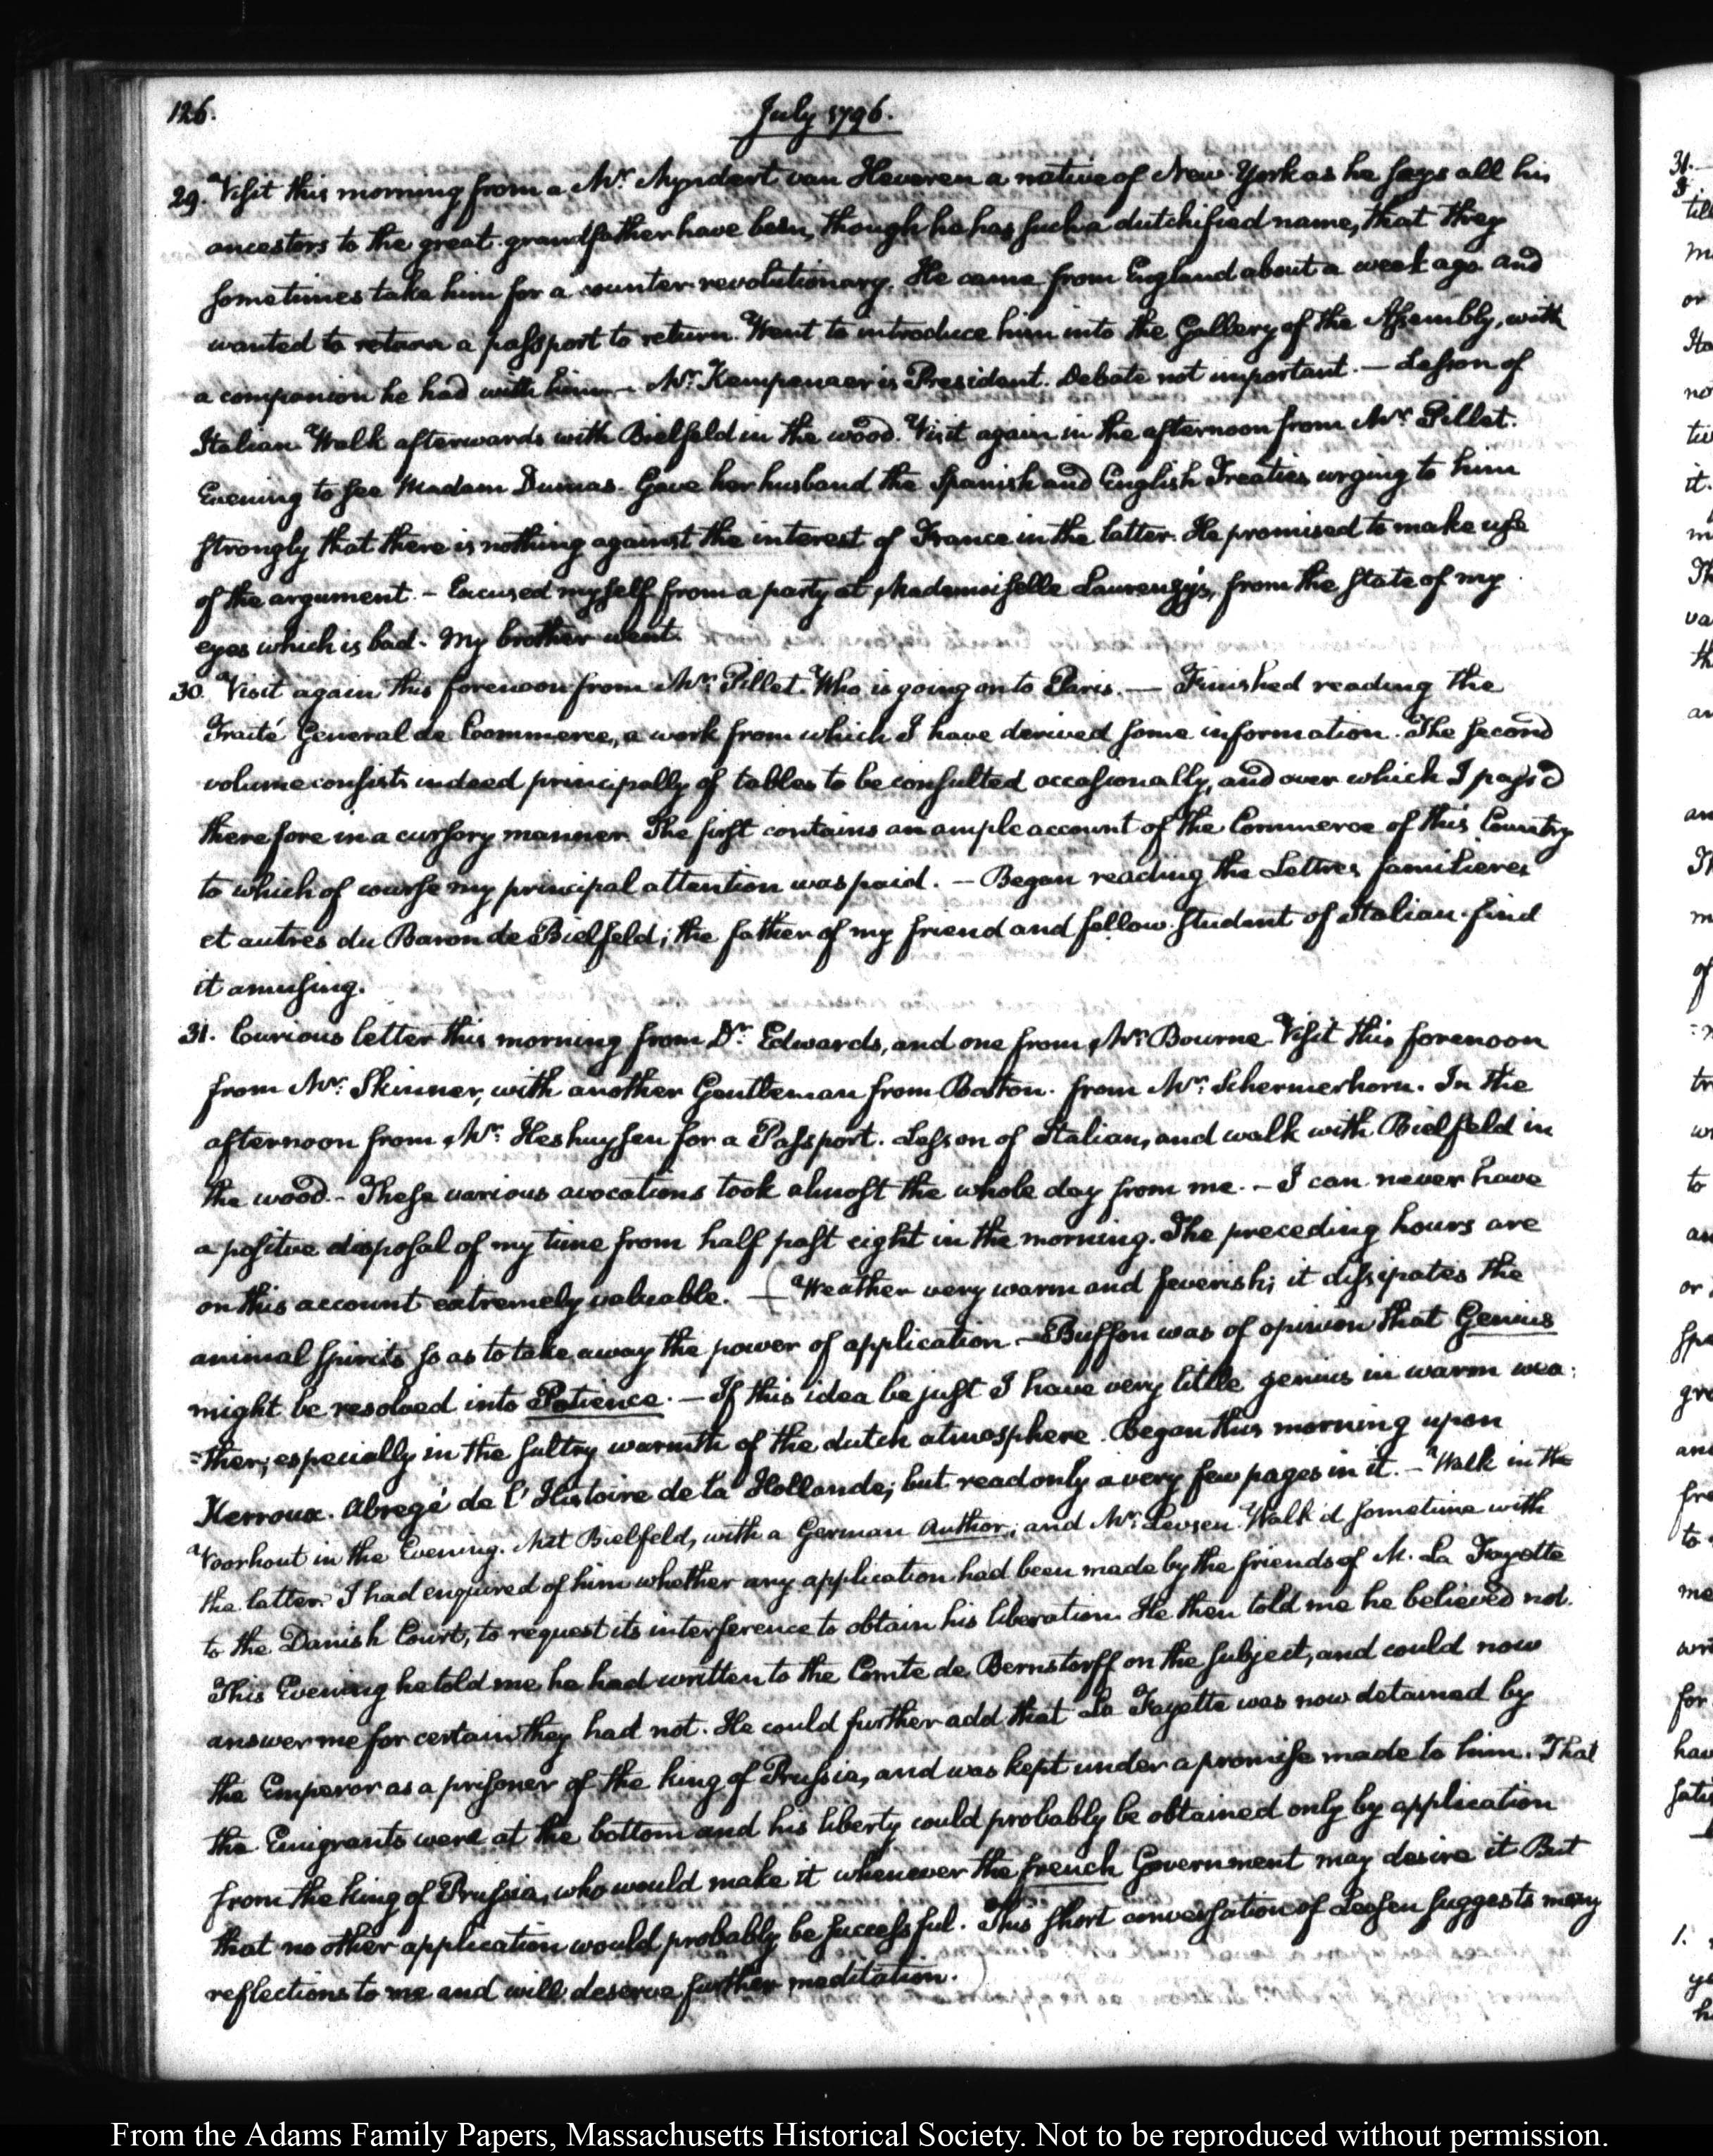 126.
July 1796.
29. Visit this morning from a Mr. Myndert van Heveren a native of New-York as he says all his
ancestors to the great-grandfather have been, though he has such a dutchified name, that they
sometimes take him for a counter-revolutionary. He came from England about a week ago and
wanted to return a passport to return. Went to introduce him into the Gallery of the Assembly, with
a companion he had with him — Mr. Kempenaer is President. Debate not important. — Lesson of
Italian Walk afterwards with Bielfeld in the wood. Visit again in the afternoon from Mr. Pillet.
Evening to see Madam Dumas. Gave her husband the Spanish and English Treaties urging to him
strongly that there is nothing against the interest of France in the latter. He promised to make use
of the argument. – Excused myself from a party at Mademoiselle Laurenzy's, from the state of my
eyes which is bad. My brother went.
30. Visit again this forenoon from Mr. Pillet. Who is going on to Paris. — Finished reading the
Traité General de Commerce, a work from which I have derived some information. The second
volume consists indeed principally of tables to be consulted occasionally, and over which I pass'd
therefore in a cursory manner. The first contains an ample account of the Commerce of this Country
to which of course my principal attention was paid. — Began reading the Lettres familieres
et autres du Baron de Bielfeld; the father of my friend and fellow-student of Italian. find
it amusing.
31. Curious letter this morning from Dr. Edwards, and one from Mr. Bourne. Visit this forenoon
from Mr. Skinner, with another Gentleman from Boston. from Mr. Schermerhorn. In the
afternoon from Mr. Heshuysen for a Passport. Lesson of Italian, and walk with Bielfeld in
the wood. – These various avocations took almost the whole day from me. – I can never have
a positive disposal of my time from half past eight in the morning. The preceding hours are
on this account extremely valuable. — (Weather very warm and feverish; it dissipates the
animal spirits so as to take away the power of application. — Buffon was of opinion that Genius
might be resolved into Patience. — If this idea be just I have very little genius in warm wea-
-ther; especially in the sultry warmth of the dutch atmosphere. Began this morning upon
Kerroux. Abregé de l'Histoire de la Hollande; but read only a very few pages in it. – Walk in the
Voorhout in the Evening. Met Bielfeld, with a German Author; and Mr. Levsen. Walk'd sometime with
the latter. I had enquired of him whether any application had been made by the friends of M. La Fayette
to the Danish Court, to request its interference to obtain his liberation. He then told me he believed not.
This Evening he told me he had written to the Comte de Bernstorff on the subject, and could now
answer me for certain they had not. He could further add that La Fayette was now detained by
the Emperor as a prisoner of the king of Prussia, and was kept under a promise made to him. That
the Emigrants were at the bottom and his liberty could probably be obtained only by application
from the king of Prussia, who would make it whenever the french Government may desire it But
that no other application would probably be successful. This short conversation of Levsen suggests many
reflections to me and will deserve further meditation.)
From the Adams Family Papers, Massachusetts Historical Society. Not to be reproduced without permission.